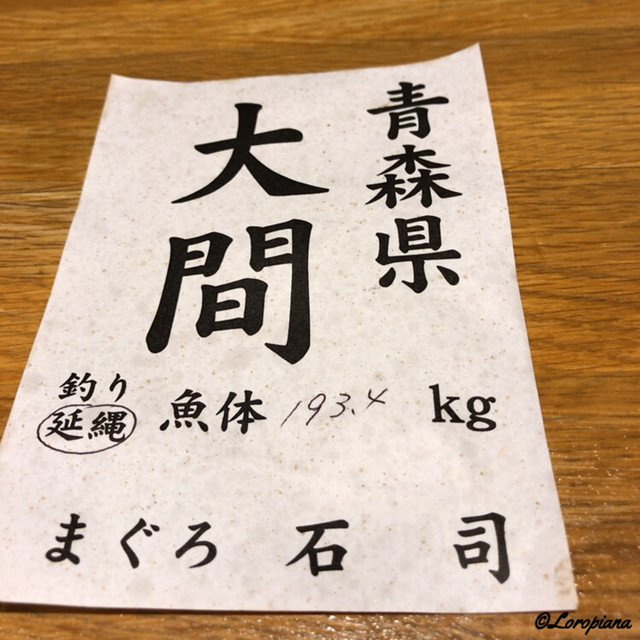 青森県
大間
釣り
延縄 魚体 193.4 kg
まぐろ 石司
©Loropiana